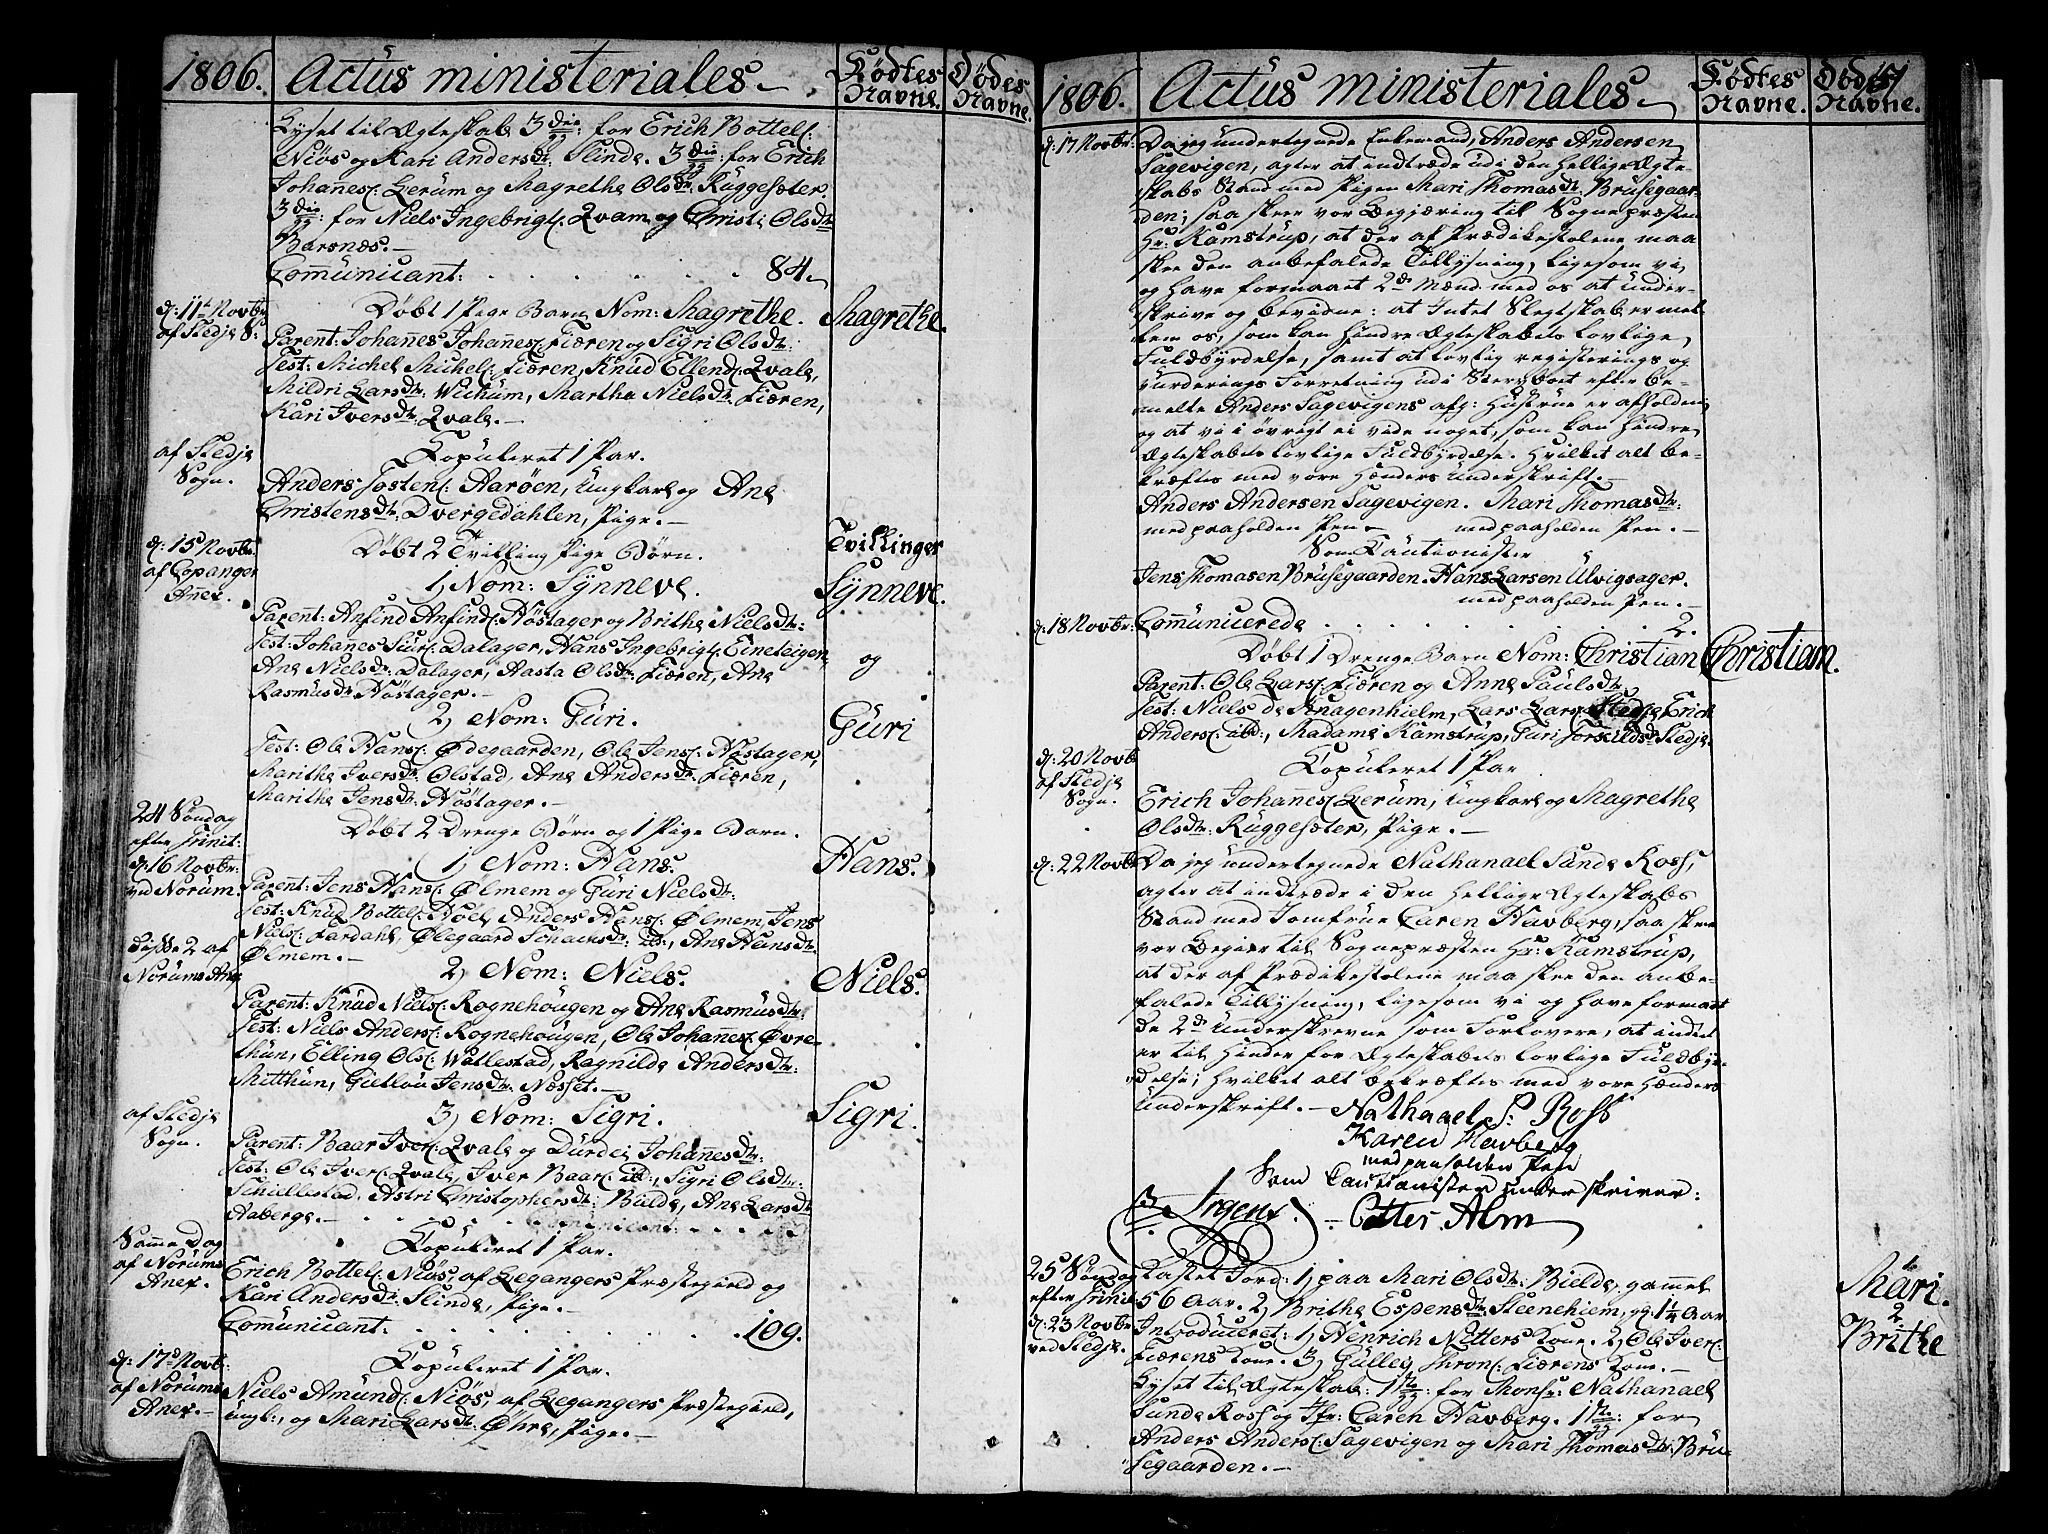 1806. Actus ministeriales Fødtes Navne. Dødes Navne.
Lyset til Ægteskab 3die gg: for Erich Bottels:
Niøs og Kari Andersdtr: Slinde. 3die gg: for Erich
Johanes: Lerum og Magrethe Olsdtr: Ruggesæter
3die gg: for Niels Ingebrigts: Qvam og Christi Olsdtr
Barsnæs.
Comunicant: 84
d: 11te Novbr: Døbt 1 Pige Barn Nom: Magrethe. Magrethe.
af Stedje S: Parent: Johannes Johannes: Fiæren og Sigri Olsdtr:
Test: Michel Michels: Fiæren, Knud Ellends: Qvale,
Mildri Larsdtr: Wichum, Martha Nielsdtr: Fiæren,
Kari Iversdtr: Qvale.
af Stedje Sogn. Copuleret 1 Par.
Anders Jostens: Aarøen, Ungkarl og Ane
Christensdtr: Dvergedahlen, Pige.
d: 15 Novbr: Døbt 2 Tvilling Pige Børn. Tvillinger
af Copanger Anex. 1, Nom: Synneve. Synneve.
Parent: Anfind Anfinds: Høstager og Brithe Nielsdtr:
Test: Johanes Siur: Dalager, Hans Ingebrigts: Eineteigen,
Ane Nielsdtr: Dalager, Aasta Olsdtr: Fiæren, Ane og
Rasmusdtr Høstager.
2, Nom: Guri. Guri
Test: Ole Hans: Ødegaarden, Ole Jens: Høstager,
Marithe Iversdtr: Olstad, Ane Andersdtr: Fiæren,
Marithe Jensdtr: Høstager.
24 Søndag efter Trinit: Døbt 2 Drenge Børn og 1 Pige Barn.
d: 16 Novbr: 1, Nom: Hans. Hans.
ved Norum. Parent: Jens Hans: Ølmem og Guri Nielsdtr:
Test: Knud Bottels: Høel, Anders Hans: Ølmem, Jens
Niels: Fardahl, Ølegaard Schacksdtr: ibd:, Ane Hansdtr:
Disse 2 af Ølmem.
Norums Anex 2, Nom: Niels. Niels.
Parent: Knud Niels: Rognehougen og Ane Rasmusdtr:
Test: Niels Anders: Rognehougen, Ole Johannes: Øvre-
thun, Elling Ols: Wallestad, Ragnilde Andersdtr:
Mitthun, Gietlou Jensdtr: Næsset.
af Stedje Sogn. 3, Nom: Sigri. Sigri.
Parent: Baar Iver: Qvale og Durdei Johannesdtr:
Test: Ole Iver: Qvale, Iver Baar: ibd:, Sigri Olsdtr:
Schiellestad, Astri Christophersdtr: Bielde, Ane Larsdtr:
Aaberge.
Samme Dag Copuleret 1 Par.
af Norums Anex. Erich Bottels: Niøs, af Legangers Præstegield og
Kari Andersdtr: Slinde, Pige.
Comunicant: 109.
d: 17de Novb: Copuleret 1 Par.
af Norums Anex. Niels Amund: Niøs, af Legangers Præstegield,
Ungk:, og Mari Larsdtr: Øhre, Pige.
1806. Actus ministeriales Fødtes Navne. Dødes Navne. 151
d: 17 Novbr: Da jeg undertegnede Enkemand, Anders Andersen
Sagevigen, agter at indtræde udi den hellige Ægte-
skabs Stand med Pigen Mari Thomasdtr: Brusegaar-
den; saa skeer vor Begjæring til Sognepræsten
Hr: Kamstrup, at der af Prædikestolene maa
skee den anbefalede Tillysning, ligesom vi
og have formaaet 2de Mænd med os at under-
skrive og bevidne: at Intet Slegtskab er mel-
lem os, som kan hindre Ægteskabets lovlige
Fuldbyrdelse, samt at lovlig registerings og
vurderings Forretning udi Sterbboet efter be-
melte Anders Sagevigens afg: Hustrue er afholden,
og at vi i øvrigt ei vide noget, som kan hindre
Ægteskabets lovlige Fuldbyrdelse. Hvilket alt be-
kræftes med vore Hænders Underskrift.
Anders Andersen Sagevigen. Mari Thomasdtr:
med paaholden Pen. med paaholden Pen.
Som Cautionister
Jens Thomasen Brusegaarden. Hans Larsen Ulvigsager.
med paaholden Pen.
d: 18 Novbr: Communicerede 2.
Døbt 1 Drenge Barn Nom: Christian Christian.
Parent: Ole Lars: Fiæren og Anne Paulsdtr:
Test: Niels de Knagenhielm, Lars Lars: Stedje, Erich
Anders: ibd:, Madame Kamstrup, Guri Torkildsdtr Stedje.
d: 20 Novbr Copuleret 1 Par
af Stedje Sogn. Erich Johannes: Lerum, Ungkarl og Magrethe
Olsdtr: Ruggesæter, Pige.
d: 22 Novbr Da jeg undertegnede Nathanael Sunde Ross,
agter at indtræde i den hellige Ægteskabs
Stand med Jomfrue Caren Havberg, saa skeer
vor Begier til Sognepræsten Hr: Kamstrup,
at der af Prædikestolene maa skee den anbe-
falede Tillysning, ligesom vi og have formaaet
de 2de Underskrevne som Forlovere, at intet
er til Hinder for Ægteskabets lovlige Fuldbyr-
delse; hvilket alt bekræftes med vore Hænders
Underskrift. Nathanael S: Ross
Karen Havberg
med paaholden Pen
Som Cautionister underskriver:
Irgens. Alm
25 Søndag Kastet Jord: 1, paa Mari Olsdtr: Bielde, gammel 1 Mari.
efter Trinit: 56 Aar. 2, Brithe Espensdtr: Steenehiem, gl: 1¼ Aar 2
d: 23 Novbr Introduceret: 1, Henrich Nitters Kone. 2, Ole Iver: Brithe
ved Stedje. Fiærens Kone. 3, Gulley Thron: Fiærens Kone.
Lyset til Ægteskab: 1te gg: for Monsr: Nathanael
Sunde Ross og Jfr: Caren Havberg. 1te gg: for
Anders Anders: Sagevigen og Mari Thomasdtr: Bru-
segaarden.